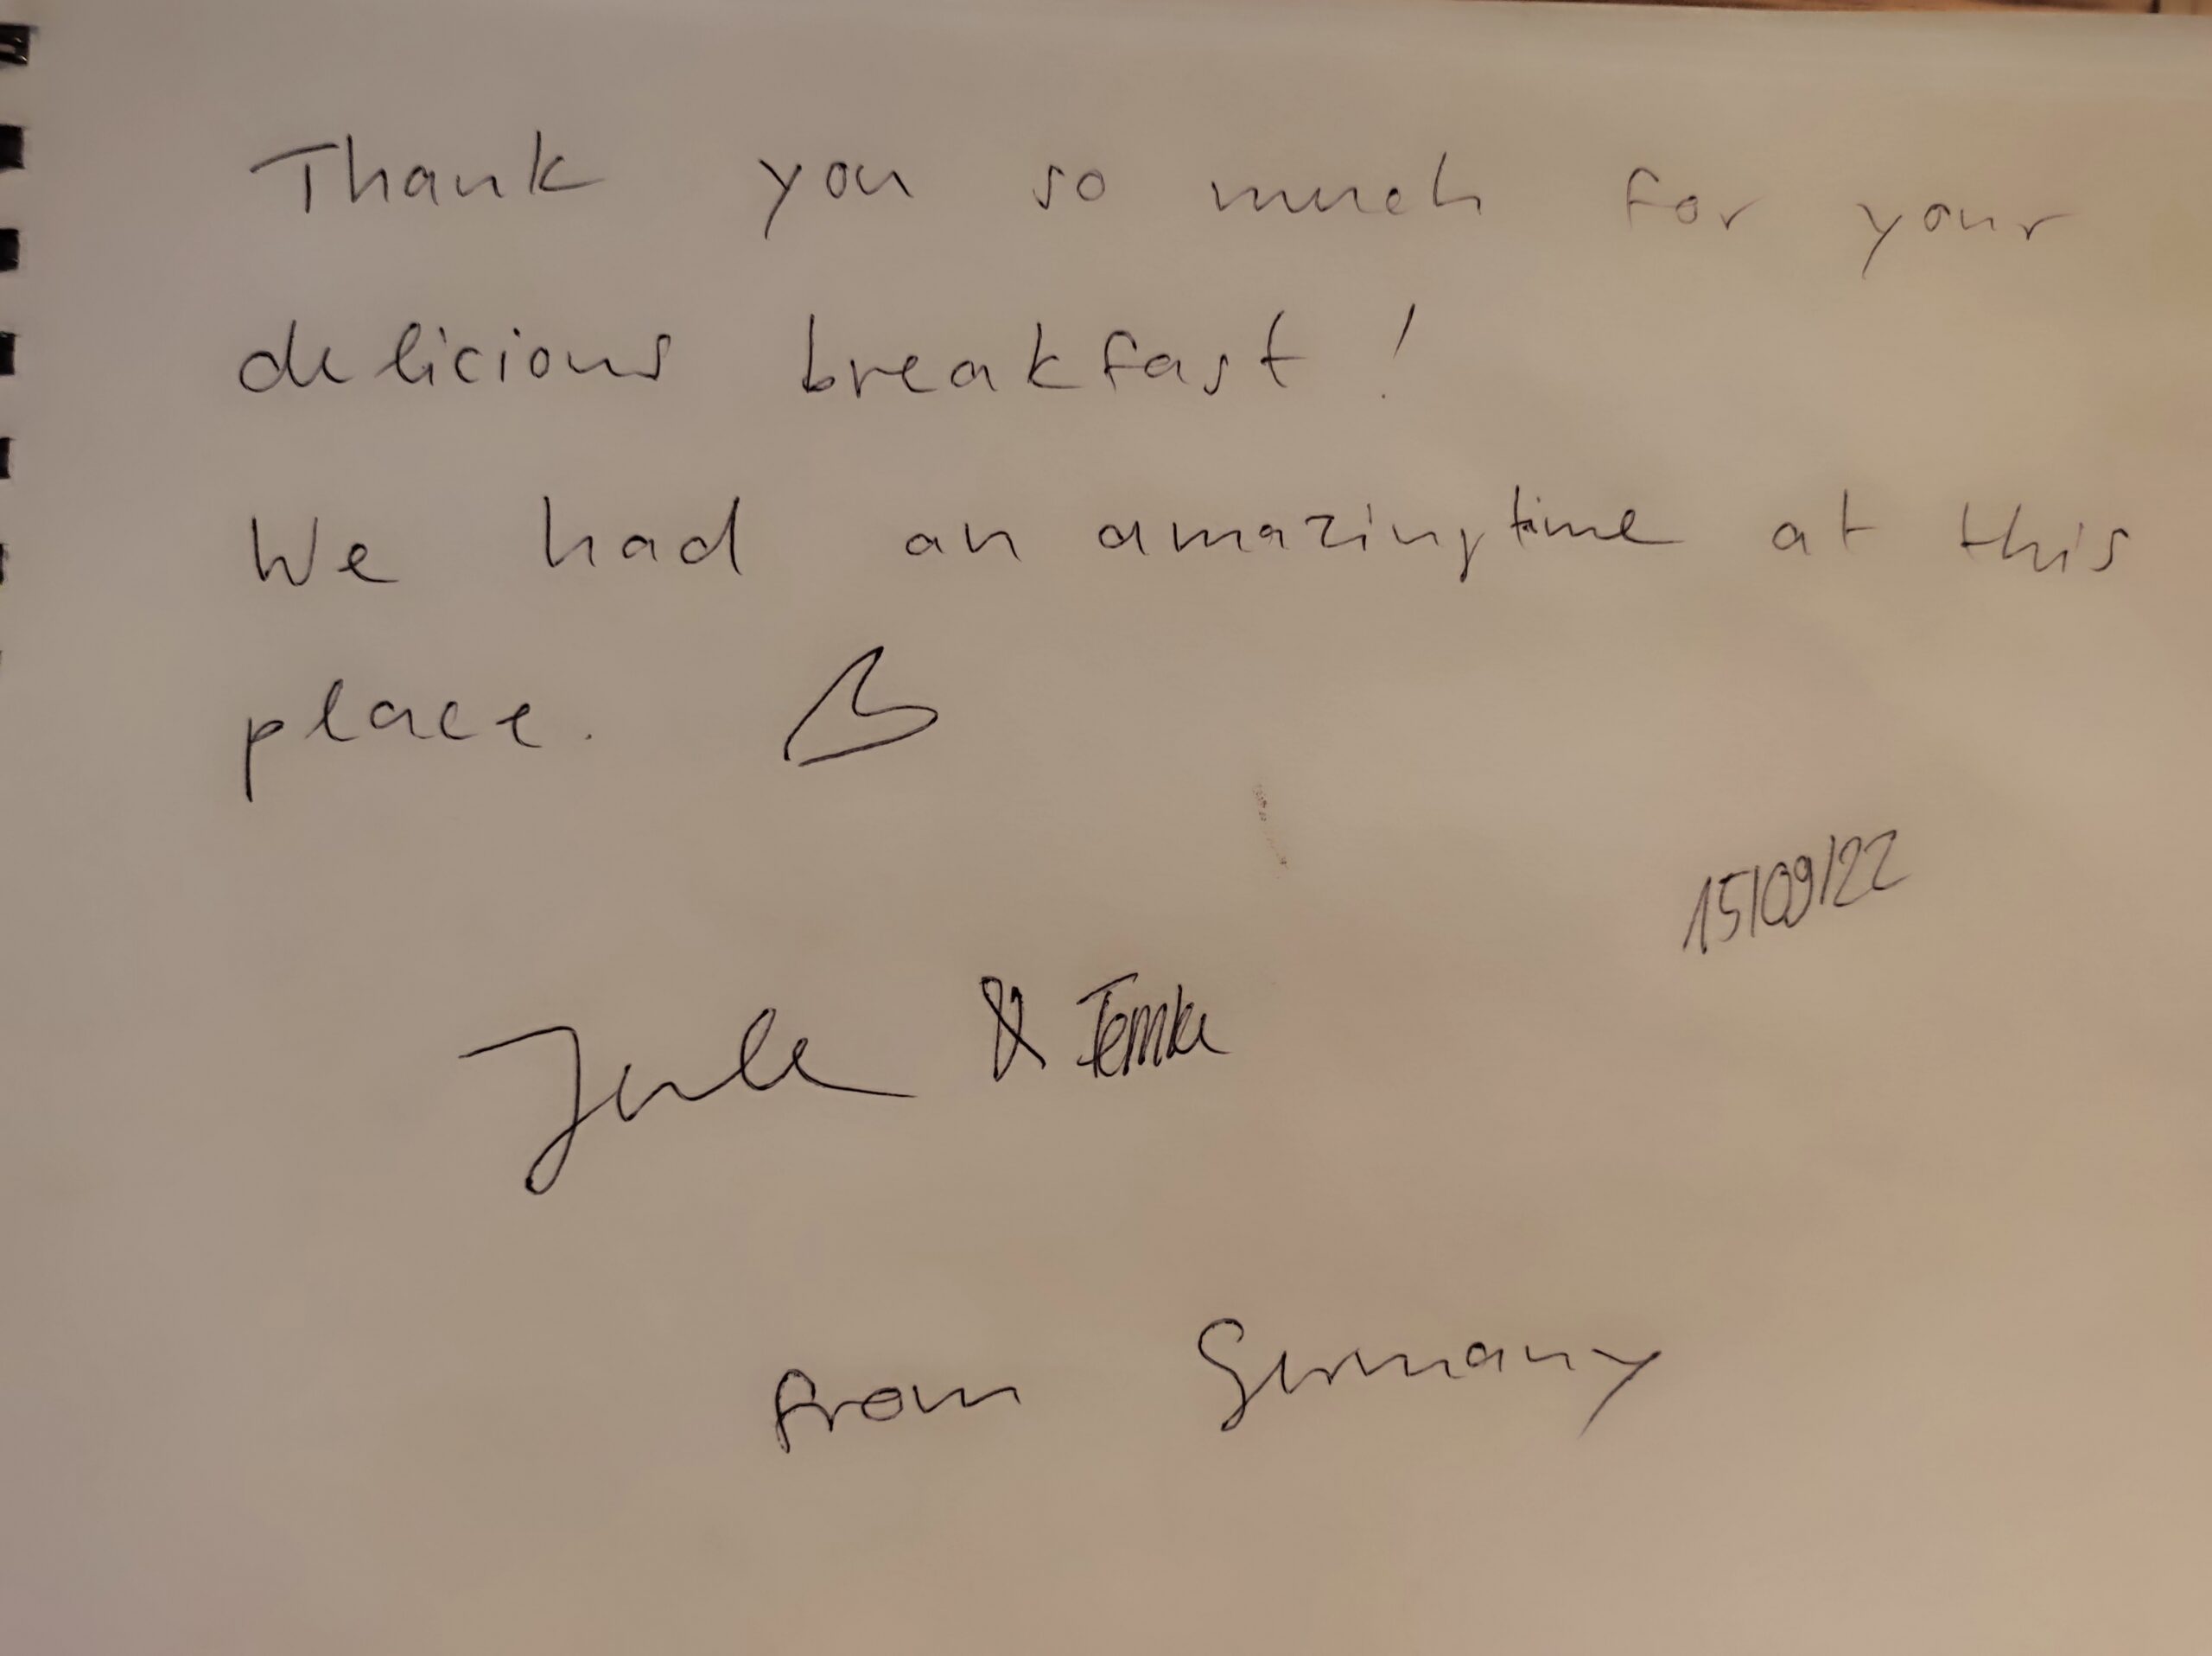 Thank you so much for your
delicious breakfast!
We had an amazing time at this
place.
15/09/22
Jule & Temke
from Germany